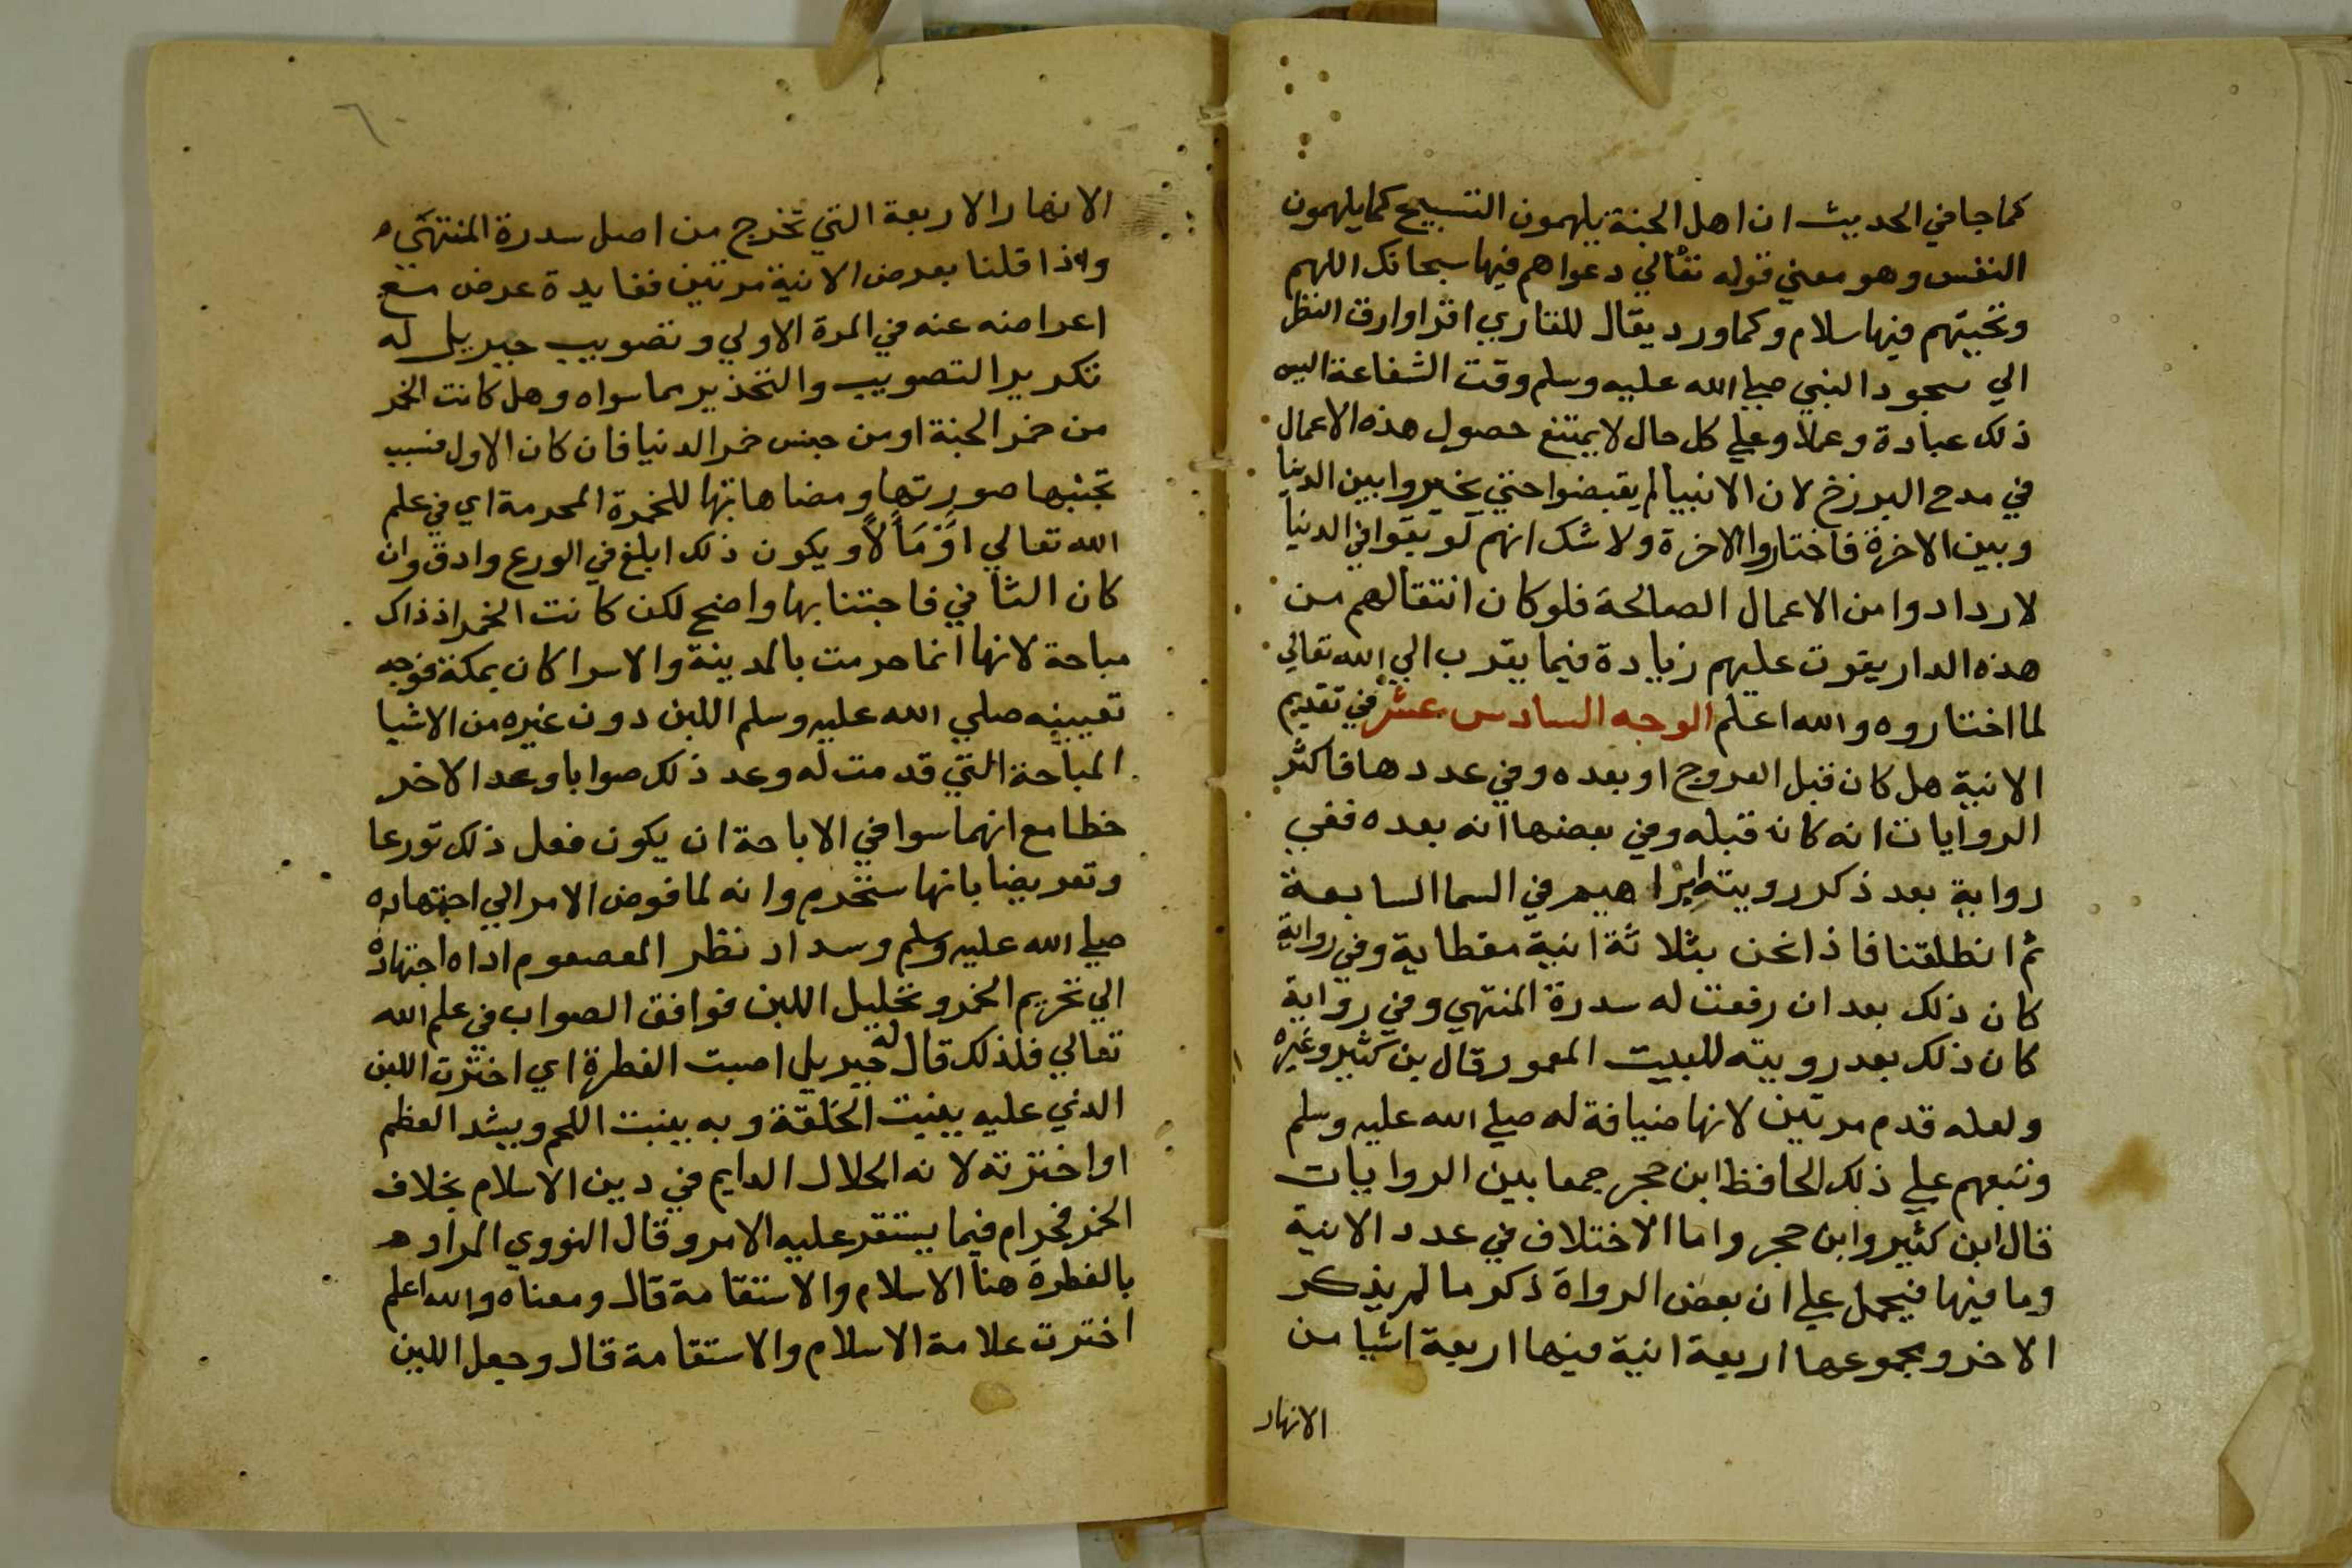 كما جا في الحديث ان اهل الجنة يلهمون التسبيح كما يلهمون
النفس وهو معني قوله تعالي دعواهم فيها سبحانك اللهم
وتحيتهم فيها سلام وكما ورد يقال للقاري اقرا وارق انظر
الي سجود النبي صلي الله عليه وسلم وقت الشفاعة اليس
ذلك عبادة وعملا وعلي كل حال لا يمتنع حصول هذه الاعمال
في مدح البرزخ لان الانبيا لم يقبضوا حتي يخيروا بين الدنيا
وبين الاخرة فاختاروا الاخرة ولا شك انهم لو بقوا في الدنيا
لازدادوا من الاعمال الصالحة فلو كان انتقالهم من
هذه الدار يفوت عليهم زيادة فيما يقرب الي الله تعالي
لما اختاروه والله اعلم الوجه السادس عشر في تقديم
الانية هل كان قبل العروج او بعده وفي عددها فاكثر
الروايات انه كان قبله وفي بعضها انه بعده ففي
رواية بعد ذكر رويته ابراهيم في السما السابعة
ثم انطلقنا فاذا نحن بثلاثة انية مغطاية وفي رواية
كان ذلك بعد ان رفعت له سدرة المنتهي وفي رواية
كان ذلك بعد رويته للبيت المعمور قال بن كثير وغيره
ولعله قدم مرتين لانها ضيافة له صلي الله عليه وسلم
وتبعهم علي ذلك الحافظ ابن حجر جمعا بين الروايات
قال ابن كثير وابن حجر واما الاختلاف في عدد الانية
وما فيها فيحمل علي ان بعض الرواة ذكر ما لم يذكر
الاخر ومجموعها اربعة انية فيها اربعة اشيا من
الانهار
الانهار الاربعة التي تخرج من اصل سدرة المنتهي
واذا قلنا بعرض الانية مرتين ففايدة عرض مع
اعراضه عنه في المرة الاولي وتصويب جبريل له
تكرير التصويب والتحذير مما سواه وهل كانت الخمر
من خمر الجنة او من جنس خمر الدنيا فان كان الاول فسبب
تجنبها صورتها ومضاهاتها للخمرة المحرمة اي في علم
الله تعالي اَوْ مَاَلًا ويكون ذلك ابلغ في الورع وادق وان
كان الثاني فاجتنابها واضح لكن كانت الخمر اذ ذاك
مباحة لانها انما حرمت بالمدينة والاسرا كان بمكة فوجه
تعيينه صلي الله عليه وسلم اللبن دون غيره من الاشيا
المباحة التي قدمت له وعد ذلك صوابا وعد الاخر
خطا مع انهما سوا في الاباحة ان يكون فعل ذلك تورعا
وتعريضا بانها ستحرم وانه لما فوض الامر الي اجتهاده
صلي الله عليه وسلم وسداد نظر المعصوم اداه اجتهاده
الي تحريم الخمر وتحليل اللبن فوافق الصواب في علم الله
تعالي فلذلك قال له جبريل اصبت الفطرة اي اخترت اللبن
الذي عليه بنيت الخلقة وبه ينبت اللحم ويشد العظم
او اخترته لانه الحلال الدايم في دين الاسلام بخلاف
الخمر فحرام فيما يستقر عليه الامر وقال النووي المراد
بالفطرة هنا الاسلام والاستقامة قال ومعناه والله اعلم
اخترت علامة الاسلام والاستقامة قال وجعل اللبن